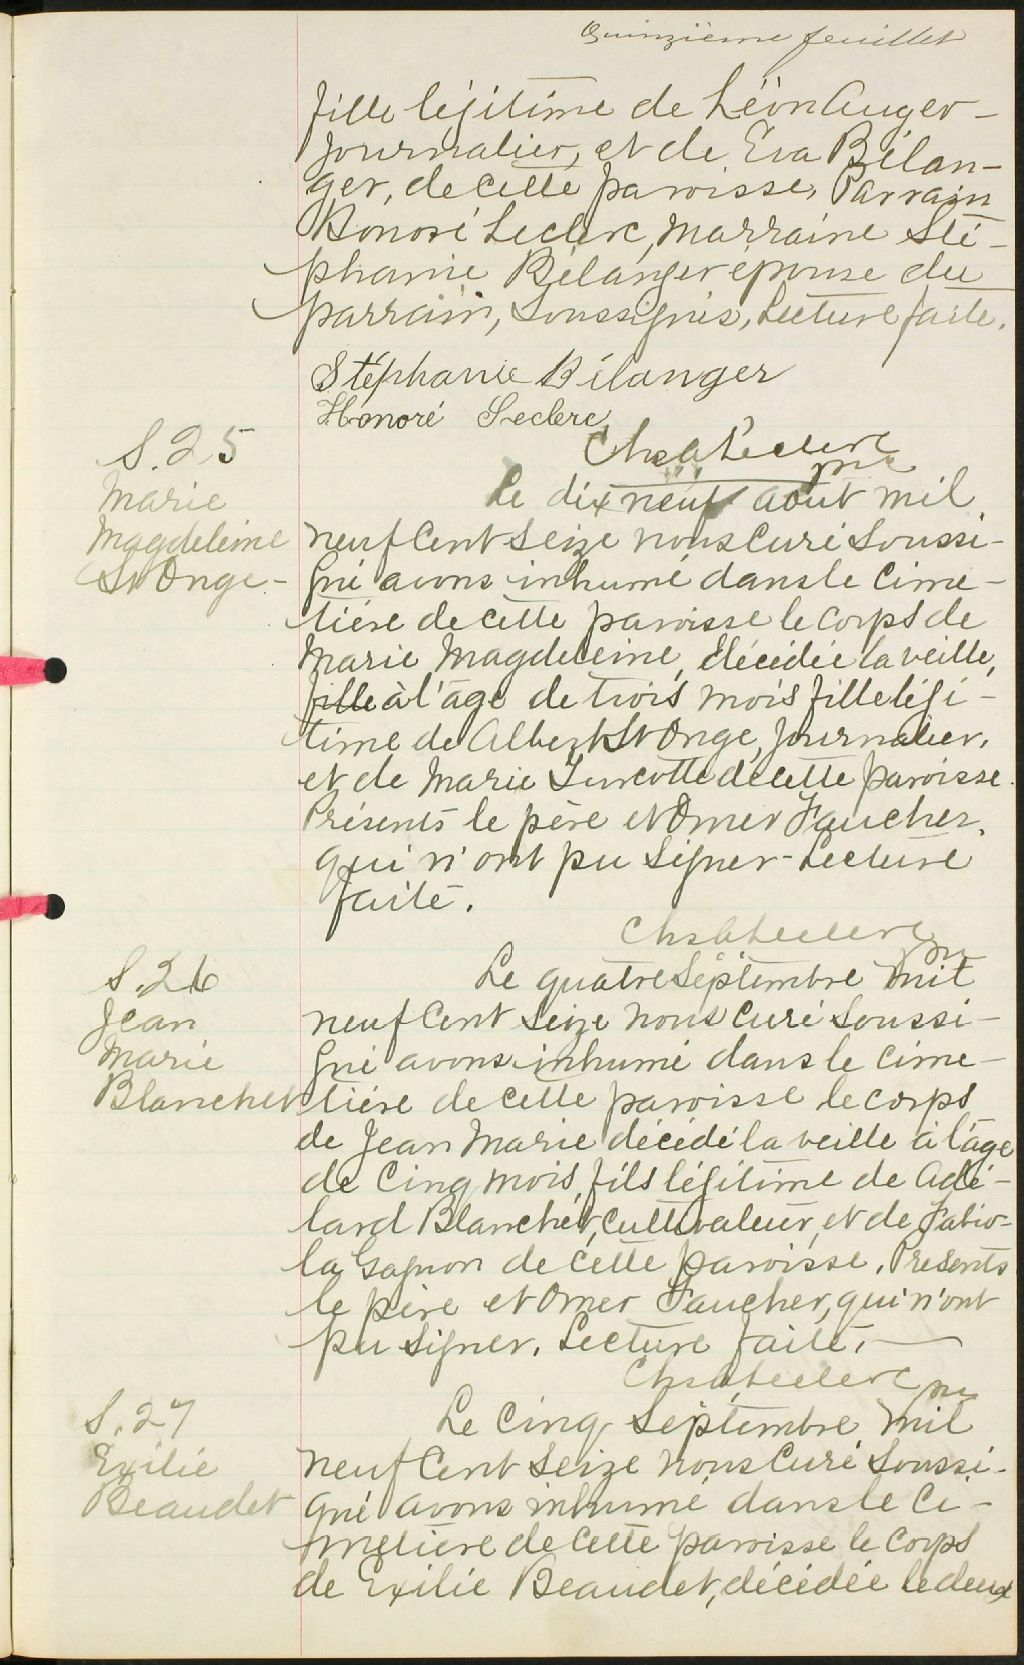 Quinzième feuillet
fille légitime de Léon Auger -
journalier, et de Eva Bélan-
ger, de cette paroisse, Parrain
Honoré Leclerc, marraine Sté-
phanie Bélanger épouse du
parrain, soussignés, Lecture faite.
Stéphanie Bélanger
Honoré Leclerc
Chs A Leclerc
ptre
S. 25
Marie
Magdeleine
St Onge -
Le dix neuf août mil
neuf cent seize nous curé soussi-
gné avons inhumé dans le cime-
tière de cette paroisse le corps de
Marie Magdeleine, décédée la veille,
fille à l'âge de trois mois fille légi-
time de Albert St Onge, journalier,
et de Marie Turcotte de cette paroisse.
Présents le père et Omer Faucher,
qui n'ont pu signer - Lecture
faite.
Chs A Leclerc
ptre
S. 26
Jean
Marie
Blanchet
Le quatre Septembre mil
neuf cent seize nous curé soussi-
gné avons inhumé dans le cime-
tière de cette paroisse le corps
de Jean Marie décédé la veille à l'âge
de cinq mois, fils légitime de Adé-
lard Blanchet, cultivateur, et de Fabio-
la Gagnon de cette paroisse. Présents
le père et Omer Faucher, qui n'ont
pu signer. Lecture faite.
Chs A Leclerc ptre
S. 27
Exilie
Beaudet
Le cinq Septembre mil
neuf cent seize nous curé soussi-
gné avons inhumé dans le ci-
metière de cette paroisse le corps
de Exilie Beaudet, décédée le deux